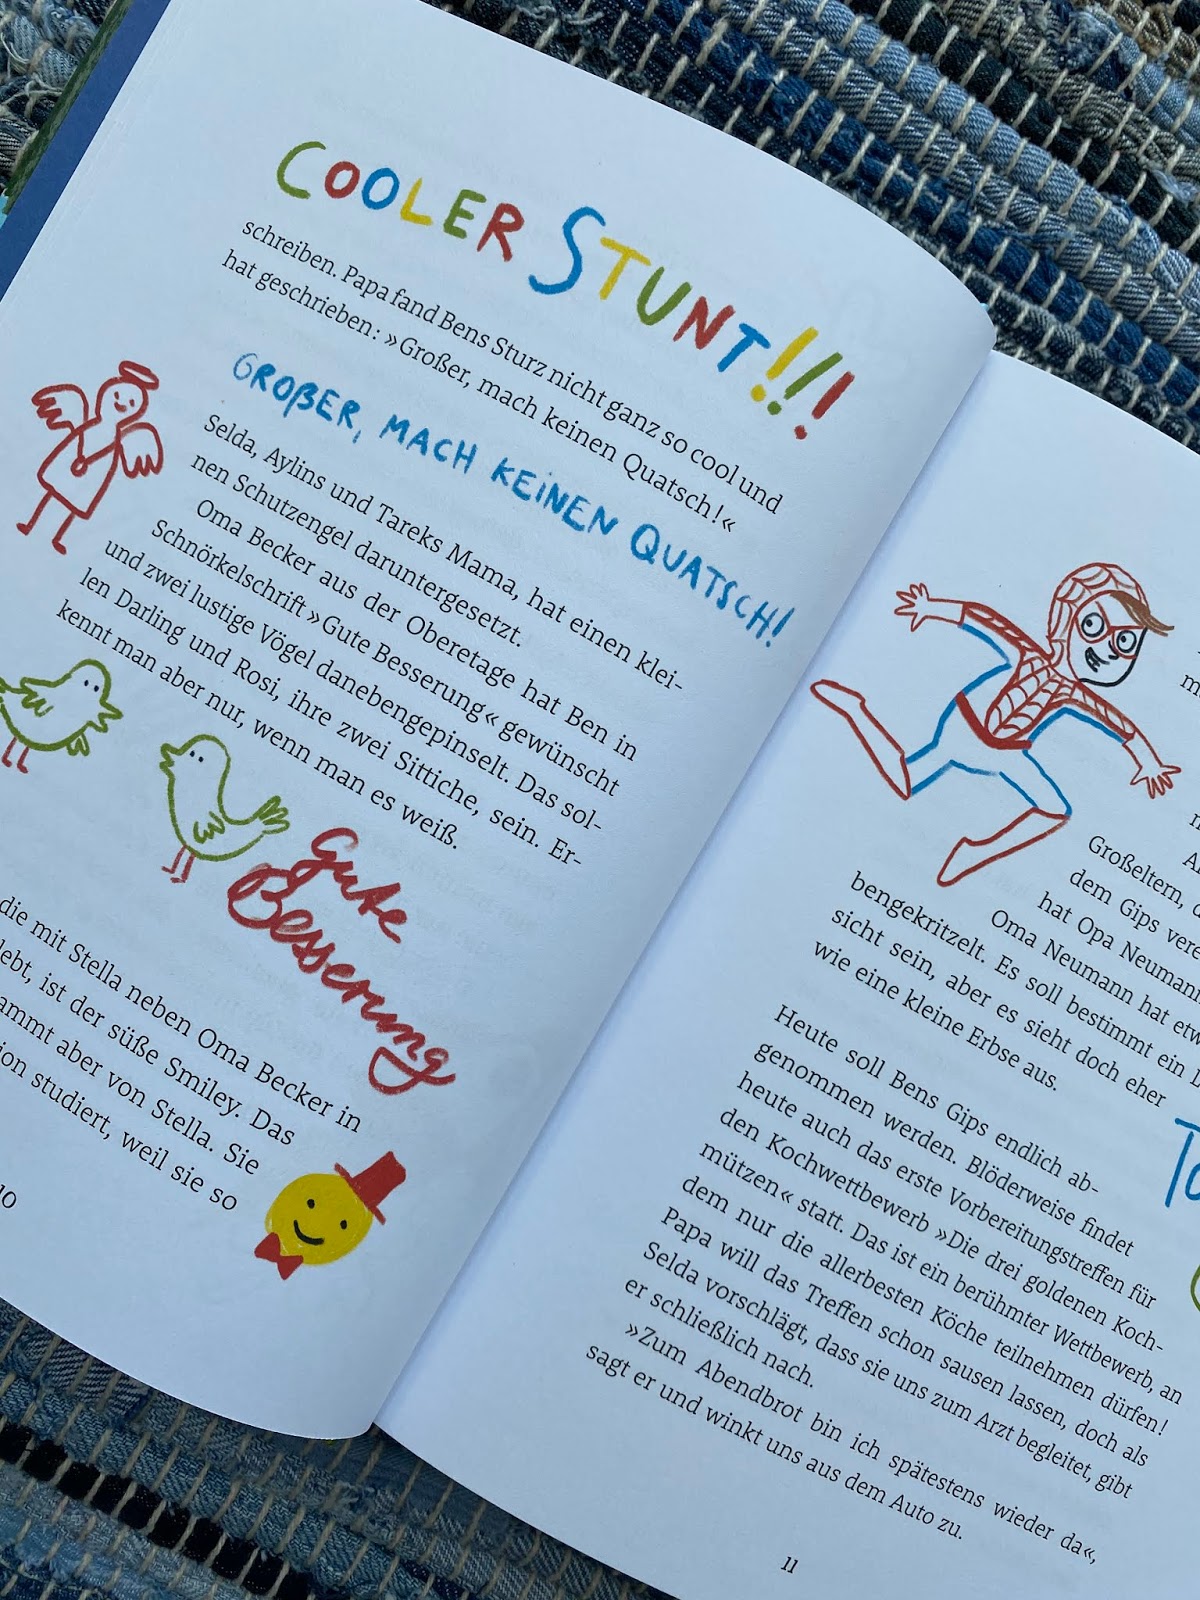 COOLER STUNT!!!
schreiben. Papa fand Bens Sturz nicht ganz so cool und
hat geschrieben: »Großer, mach keinen Quatsch!«
GROßER, MACH KEINEN QUATSCH!
Selda, Aylins und Tareks Mama, hat einen klei-
nen Schutzengel daruntergesetzt.
Oma Becker aus der Oberetage hat Ben in
Schnörkelschrift »Gute Besserung« gewünscht
und zwei lustige Vögel danebengepinselt. Das sol-
len Darling und Rosi, ihre zwei Sittiche, sein. Er-
kennt man aber nur, wenn man es weiß.
Gute
Besserung
die mit Stella neben Oma Becker in
lebt, ist der süße Smiley. Das
ammt aber von Stella. Sie
ion studiert, weil sie so
10
m
Großeltern, d
dem Gips vere
hat Opa Neumann
Oma Neumann hat etw
bengekritzelt. Es soll bestimmt ein
sicht sein, aber es sieht doch eher
wie eine kleine Erbse aus.
To
Heute soll Bens Gips endlich ab-
genommen werden. Blöderweise findet
heute auch das erste Vorbereitungstreffen für
den Kochwettbewerb »Die drei goldenen Koch-
mützen« statt. Das ist ein berühmter Wettbewerb, an
dem nur die allerbesten Köche teilnehmen dürfen!
Papa will das Treffen schon sausen lassen, doch als
Selda vorschlägt, dass sie uns zum Arzt begleitet, gibt
er schließlich nach.
»Zum Abendbrot bin ich spätestens wieder da«,
sagt er und winkt uns aus dem Auto zu.
11